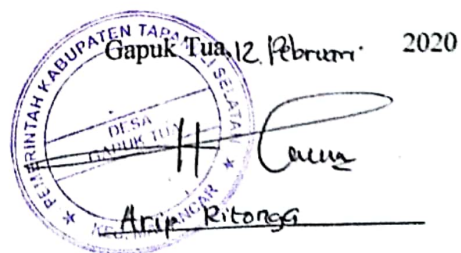 Gapuk Tua, 12 Pebruari 2020
PEMERINTAH KABUPATEN TAPANULI SELATAN
DESA
GAPUK TUA
Arip Ritonga